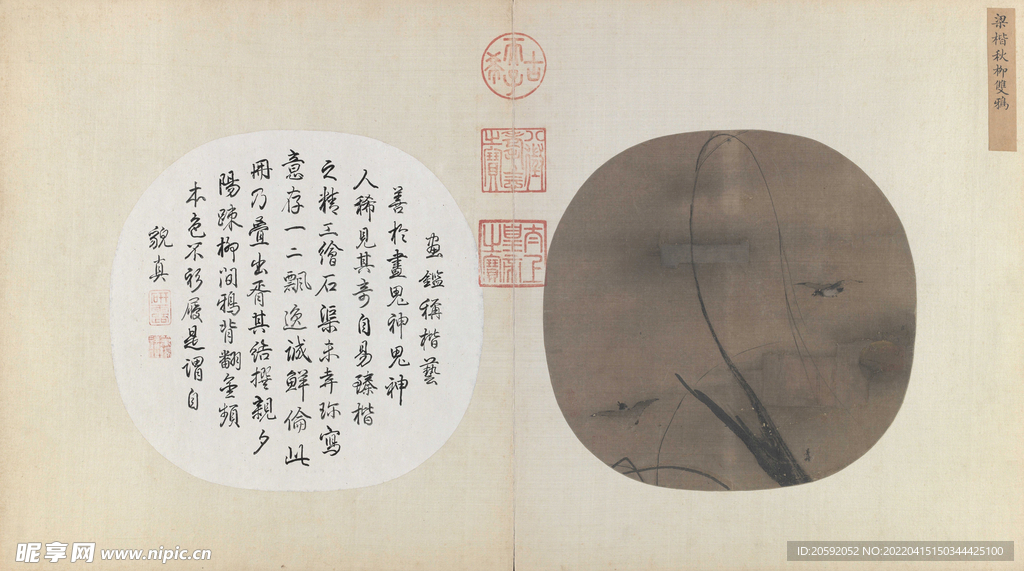 梁楷秋柳雙鴉
古希天子
八徵耄念之寶
太上皇帝之寶
畫鑑稱楷藝
善於畫鬼神鬼神
人稀見其奇自易臻楷
之精工繪石渠未弆珍寫
意存一二飄逸誠鮮倫此
冊乃疊出胥其結撰親夕
陽踈柳間鴉背翻金頻
本色不衫履是謂自
貌真
昵享网 www.nipic.cn
ID:20592052 NO:20220415150344425100